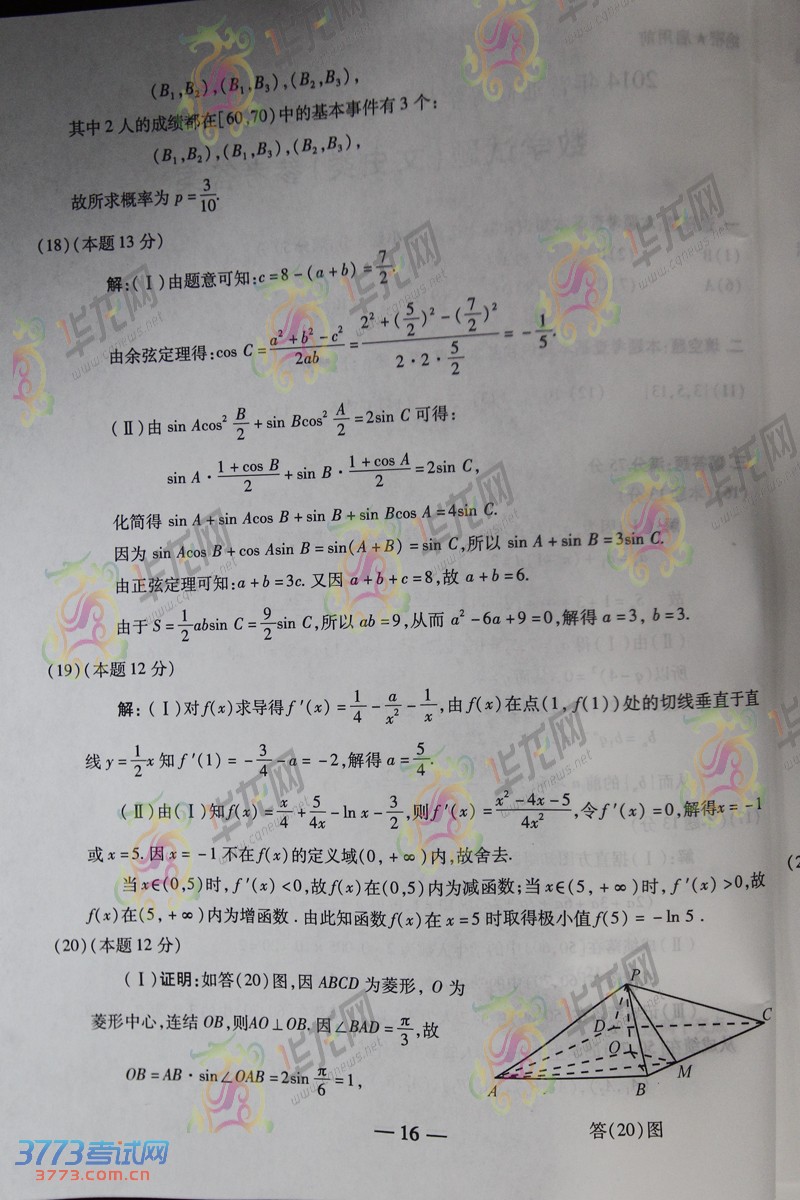 (B₁,B₂),(B₁,B₃),(B₂,B₃),
其中2人的成绩都在[60,70)中的基本事件有3个:
(B₁,B₂),(B₁,B₃),(B₂,B₃),
故所求概率为 p=3/10.
(18)(本题13分)
解:(Ⅰ)由题意可知:c=8-(a+b)=7/2.
由余弦定理得:cos C=(a²+b²-c²)/2ab=(2²+(5/2)²-(7/2)²)/(2·2·5/2)=-1/5.
(Ⅱ)由 sin Acos² B/2+sin Bcos² A/2=2sin C 可得:
sin A·(1+cos B)/2+sin B·(1+cos A)/2=2sin C,
化简得 sin A+sin Acos B+sin B+sin Bcos A=4sin C.
因为 sin Acos B+cos Asin B=sin(A+B)=sin C,所以 sin A+sin B=3sin C.
由正弦定理可知:a+b=3c. 又因 a+b+c=8,故 a+b=6.
由于 S=1/2 absin C=9/2 sin C,所以 ab=9,从而 a²-6a+9=0,解得 a=3, b=3.
(19)(本题12分)
解:(Ⅰ)对f(x)求导得f′(x)=1/4-a/x²-1/x,由f(x)在点(1,f(1))处的切线垂直于直
线 y=1/2 x 知 f′(1)=-3/4-a=-2,解得 a=5/4.
(Ⅱ)由(Ⅰ)知f(x)=x/4+5/4x-ln x-3/2,则f′(x)=(x²-4x-5)/4x²,令f′(x)=0,解得x=-1
或 x=5. 因 x=-1 不在f(x)的定义域(0,+∞)内,故舍去.
当x∈(0,5)时,f′(x)<0,故f(x)在(0,5)内为减函数;当x∈(5,+∞)时,f′(x)>0,故
f(x)在(5,+∞)内为增函数. 由此知函数f(x)在 x=5 时取得极小值f(5)=-ln 5.
(20)(本题12分)
(Ⅰ)证明:如答(20)图,因 ABCD 为菱形, O 为
菱形中心,连结 OB,则AO⊥OB. 因∠BAD=π/3,故
OB=AB·sin∠OAB=2sin π/6=1,
P
D
C
O
A
B
M
答(20)图
—16—
3773考试网
3773.com.cn
华龙网
www.cqnews.net